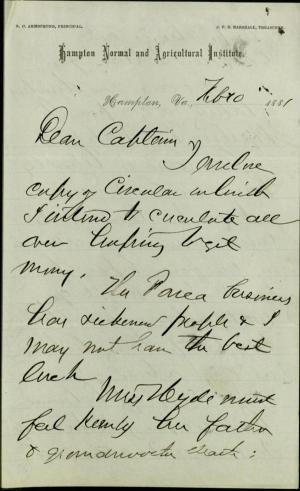 S. C. ARMSTRONG, PRINCIPAL. J. F. B. MARSHALL, TREASURER.
Hampton Normal and Agricultural Institute,
Hampton, Va., Feb 10 1881
Dear Captain
I enclose
copy of Circular which
I intend to circulate all
over hoping to get
money. The Ponca business
has sickened people & I
may not have the best
luck
Miss Hyde must
feel keenly her father
&